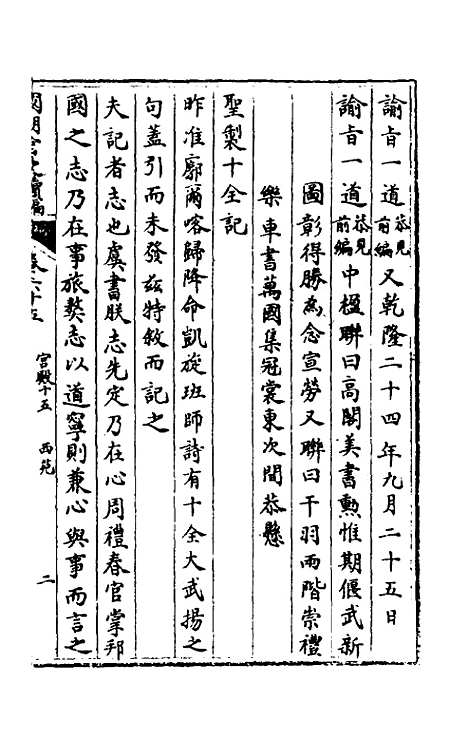 諭旨一道恭見前編又乾隆二十四年九月二十五日
諭旨一道恭見前編中楹聯曰高閣美書勲惟期偃武新
圖彰得勝為念宣勞又聯曰干羽兩階崇禮
樂車書萬國集冠裳東次間恭懸
聖製十全記
昨准廓爾喀歸降命凱旋班師詩有十全大武揚之
句蓋引而未發茲特敘而記之
夫記者志也虞書朕志先定乃在心周禮春官掌邦
國之志乃在事旅獒志以道寧則兼心與事而言之
國朝宮史續編 卷六十五 宮殿十五 西苑 二